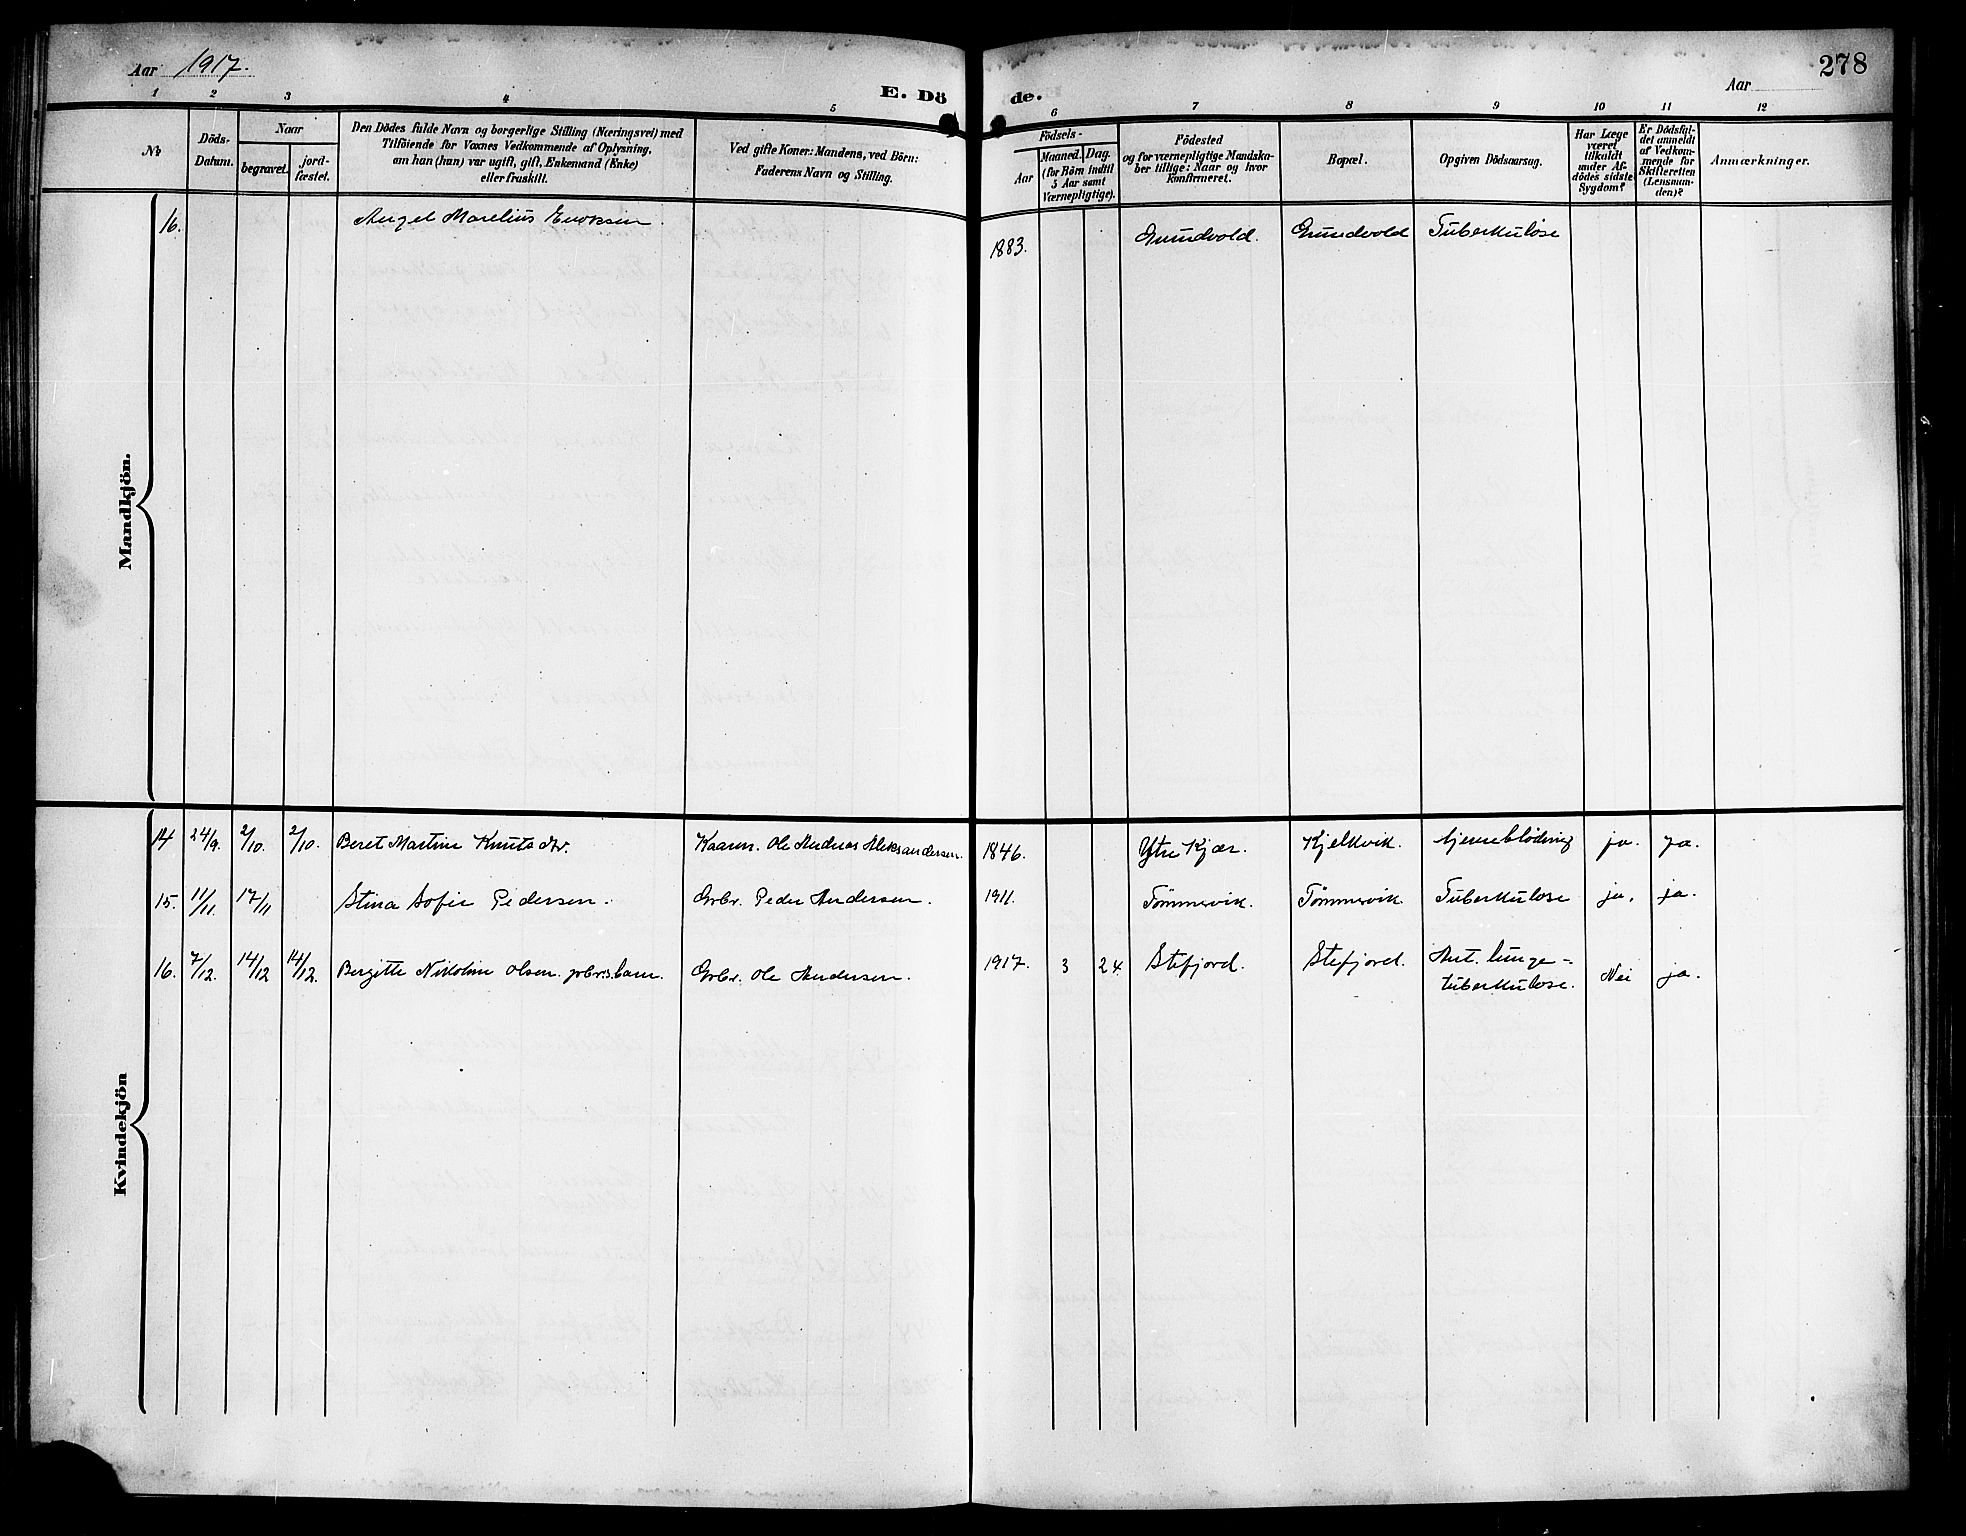 Aar 1917.
E. Dö
de.
278
Aar
1 2 3 4 5 6 7 8 9 10 11 12
No
Döds-
Datum.
Naar
begravet.
jord-
fæstet.
Den Dödes fulde Navn og borgerlige Stilling (Næringsvei) med
Tilföiende for Voxnes Vedkommende af Oplysning,
om han (hun) var ugift, gift, Enkemand (Enke)
eller fraskilt.
Ved gifte Koner: Mandens, ved Börn:
Faderens Navn og Stilling.
Födsels-
Aar
Maaned. Dag.
(for Börn indtil
5 Aar samt
Værnepligtige).
Födested
og for værnepligtige Mandska-
ber tillige: Naar og hvor
konfirmeret.
Bopæl.
Opgiven Dödsaarsag.
Har Læge
været
tilkaldt
under Af-
dödes sidste
Sygdom?
Er Dödsfal-
det anmeldt
af Vedkom-
mende for
Skifteretten
(Lensman-
den)?
Anmærkninger.
Mandkjön.
16. Angel Marelius Enoksen 1883. Grundvold. Grundvold Tuberkulose
Kvindekjön
14 24/9. 2/10. 2/10. Beret Martine Knutsdtr. Kaarm. Ole Andreas Aleksandersen. 1846. Ytre Kjær. Kjelkvik. hjerneblødning ja. ja.
15. 11/11. 17/11 Stina Sofie Pedersen. Grbr. Peder Andersen. 1911. Tømmervik. Tømmervik. Tuberkulose ja. ja.
16. 7/12. 14/12 14/12. Bergitte Nikoline Olsen. grbrs. barn. Grbr. Ole Andersen. 1917. 3 24. Stefjord. Stefjord. Ant. lunge=
tuberkulose. Nei ja.